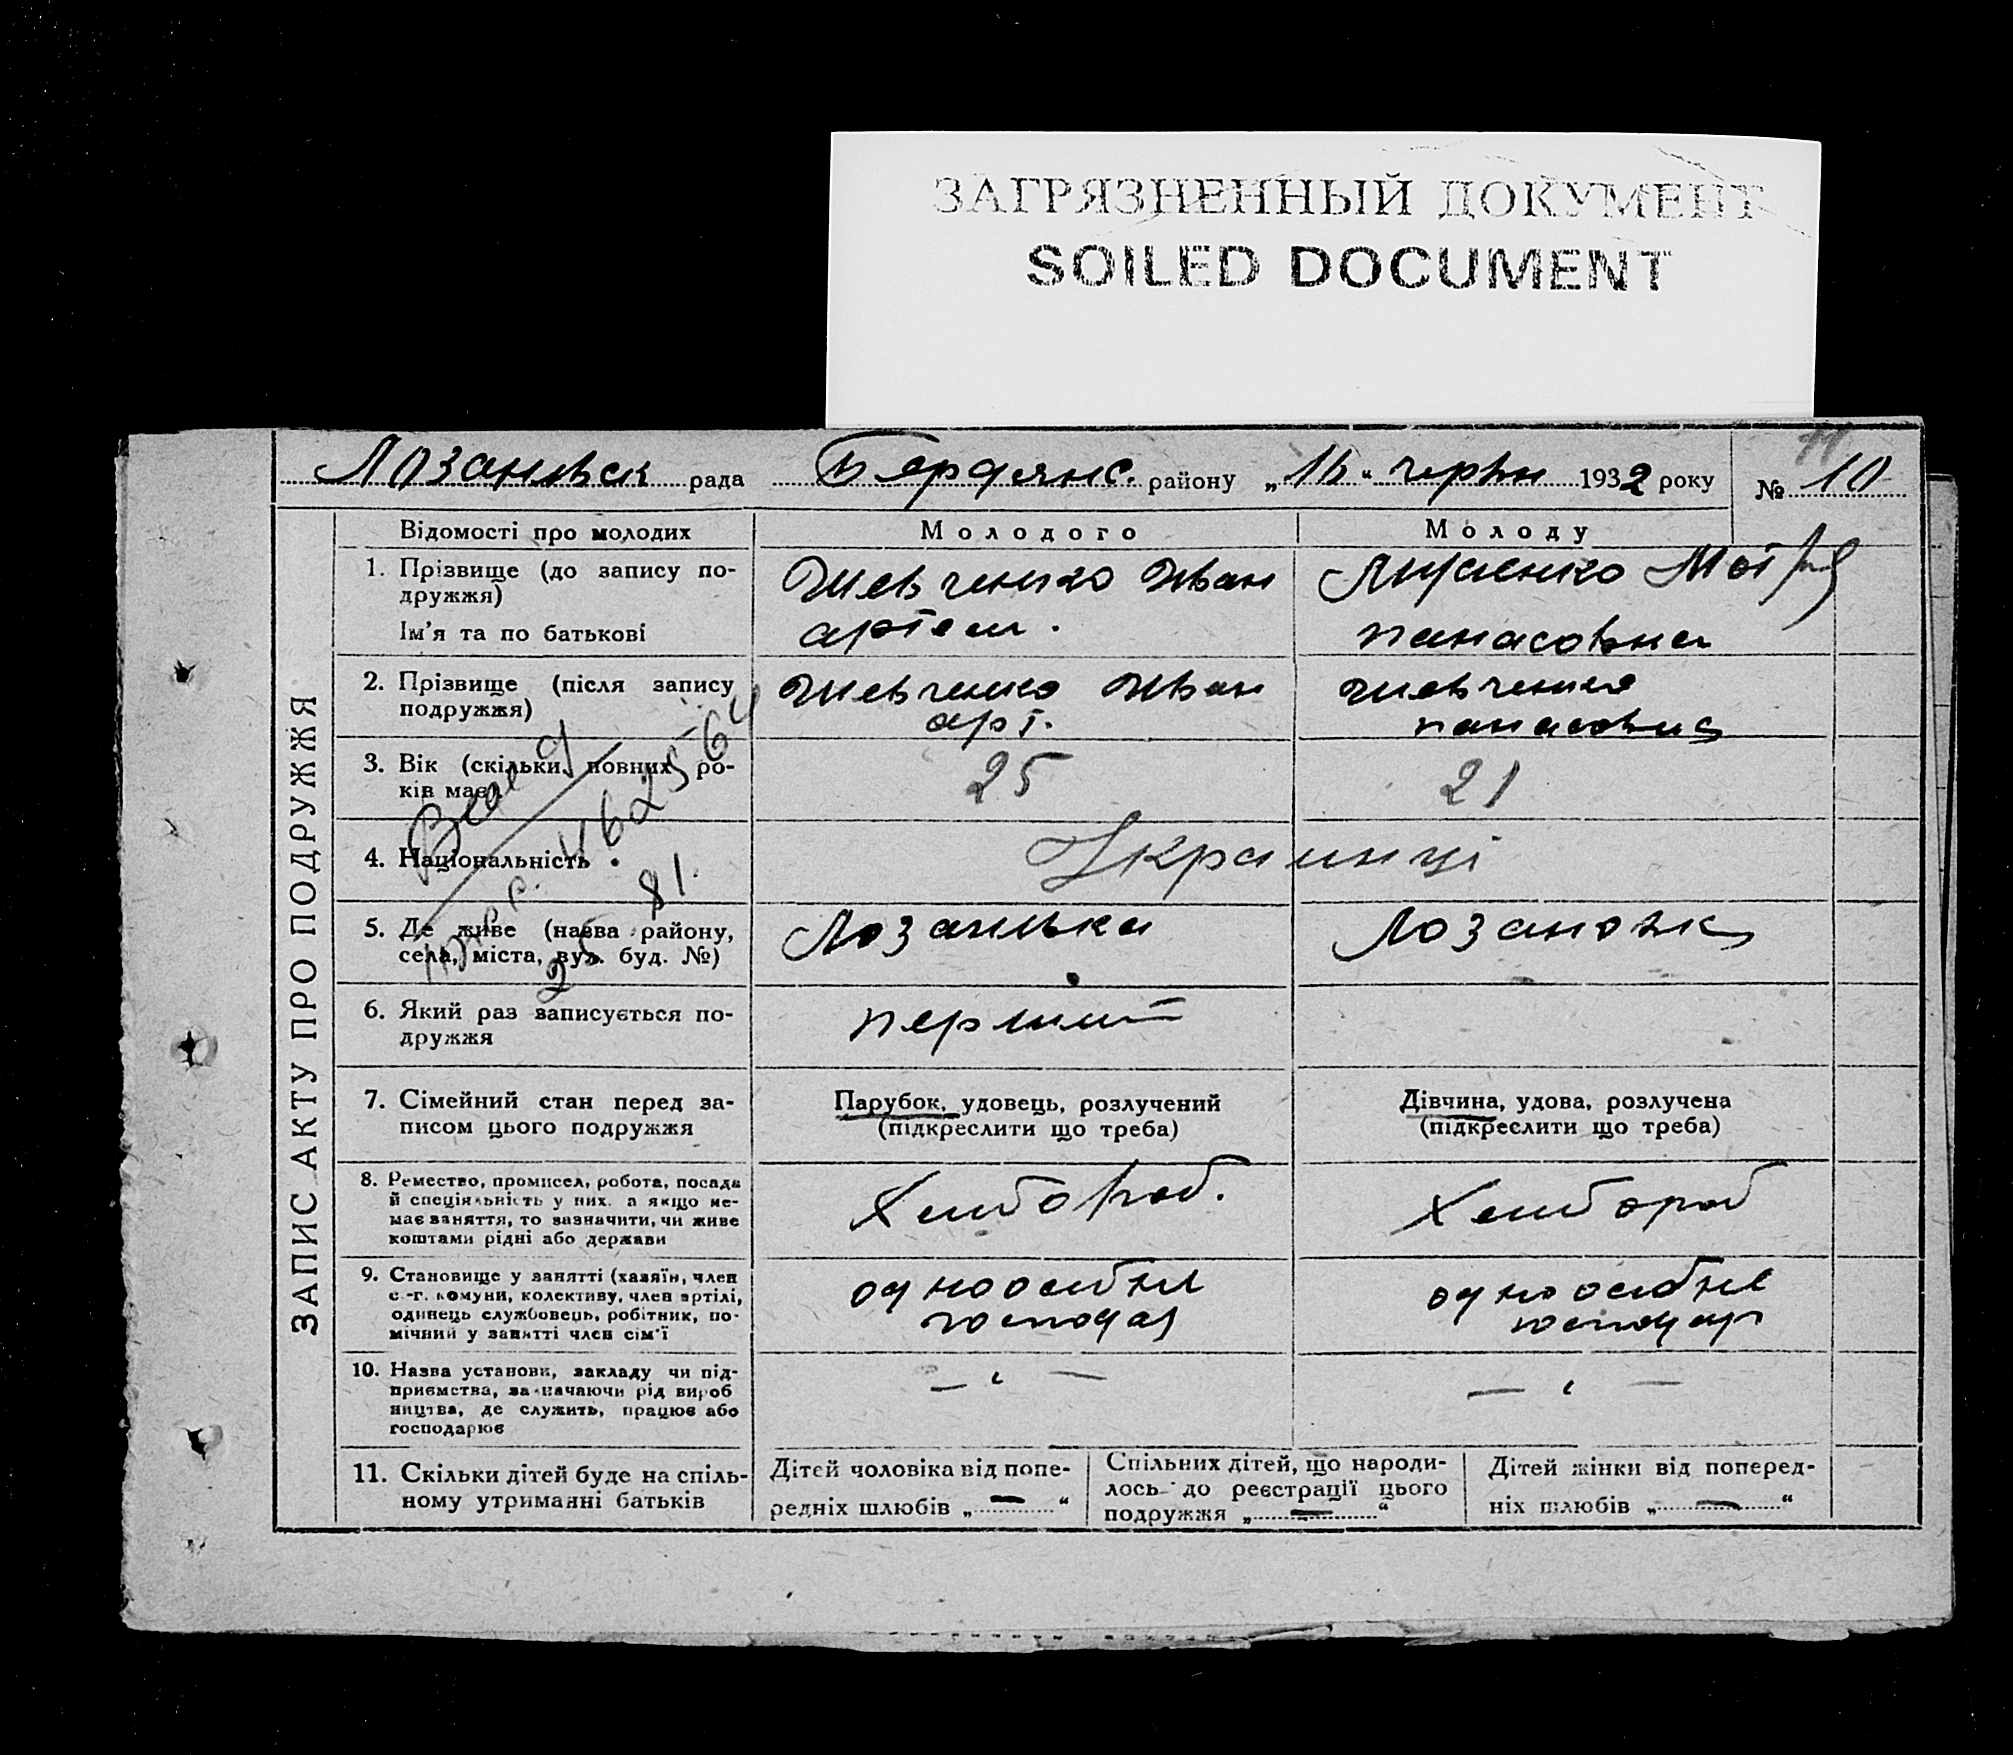 ЗАГРЯЗНЕННЫЙ ДОКУМЕНТ
SOILED DOCUMENT
11
Лозанівськ рада Бердянс. району „16“ червн 1932 року № 10
ЗАПИС АКТУ ПРО ПОДРУЖЖЯ
Відомості про молодих Молодого Молоду
1. Прізвище (до запису подружжя)
Ім'я та по батькові
Шевченко Іван
арт.
Мотря
панасовна
2. Прізвище (після запису
подружжя)
Шевченко Іван
арт.
Шевченко
панасовна
3. Вік (скільки повних ро-
ків має)
25
21
4. Національність
Українці
81.
5. Де живе (назва району,
села, міста, вул. буд. №)
Лозанівка
Лозановка
6. Який раз записується по-
дружжя
перший
7. Сімейний стан перед за-
писом цього подружжя
Парубок, удовець, розлучений
(підкреслити що треба)
Дівчина, удова, розлучена
(підкреслити що треба)
8. Ремество, промисел, робота, посада
й спеціяльність у них, а якщо не-
має заняття, то зазначити, чи живе
коштами рідні або держави
Хлібороб.
Хлібороб
9. Становище у занятті (хазяїн, член
с.-г. комуни, колективу, член артілі,
одинець службовець, робітник, по-
мічний у занятті член сім'ї
одноосібне
господар
одноосібне
господар
10. Назва установи, закладу чи під-
приємства, зазначаючи рід вироб
ництва, де служить, працює або
господарює
— " —
— " —
11. Скільки дітей буде на спіль-
ному утриманні батьків
Дітей чоловіка від попе-
редніх шлюбів „—“
Спільних дітей, що народи-
лось до реєстрації цього
подружжя „—“
Дітей жінки від поперед-
ніх шлюбів „—“